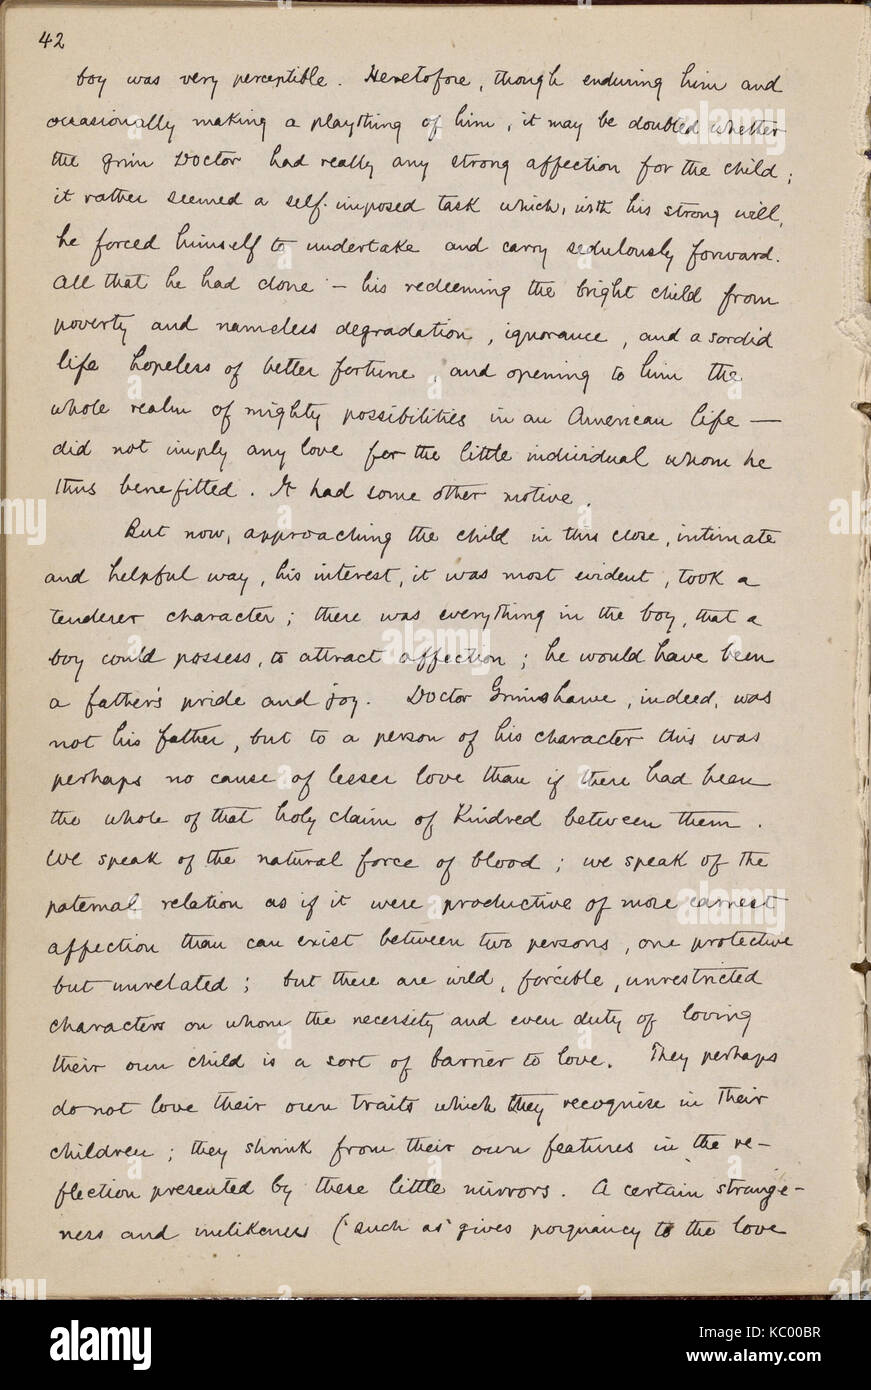 42
boy was very perceptible. Heretofore, though enduring him and
occasionally making a plaything of him, it may be doubted whether
the grim Doctor had really any strong affection for the child;
it rather seemed a self-imposed task which, with his strong will,
he forced himself to undertake and carry sedulously forward.
All that he had done — his redeeming the bright child from
poverty and nameless degradation, ignorance, and a sordid
life hopeless of better fortune, and opening to him the
whole realm of mighty possibilities in an American life —
did not imply any love for the little individual whom he
thus benefitted. It had some other motive.
But now, approaching the child in this close, intimate
and helpful way, his interest, it was most evident, took a
tenderer character; there was everything in the boy, that a
boy could possess, to attract affection; he would have been
a father's pride and joy. Doctor Grimshawe, indeed, was
not his father, but to a person of his character this was
perhaps no cause of lesser love than if there had been
the whole of that holy claim of Kindred between them.
We speak of the natural force of blood; we speak of the
paternal relation as if it were productive of more earnest
affection than can exist between two persons, one protective
but unrelated; but there are wild, forcible, unrestricted
characters on whom the necessity and even duty of loving
their own child is a sort of barrier to love. They perhaps
do not love their own traits which they recognise in their
children; they shrink from their own features in the re-
flection presented by these little mirrors. A certain strange-
ness and unlikeness (such as gives poignancy to the love
alamy
alamy
Image ID: KC00BR
www.alamy.com